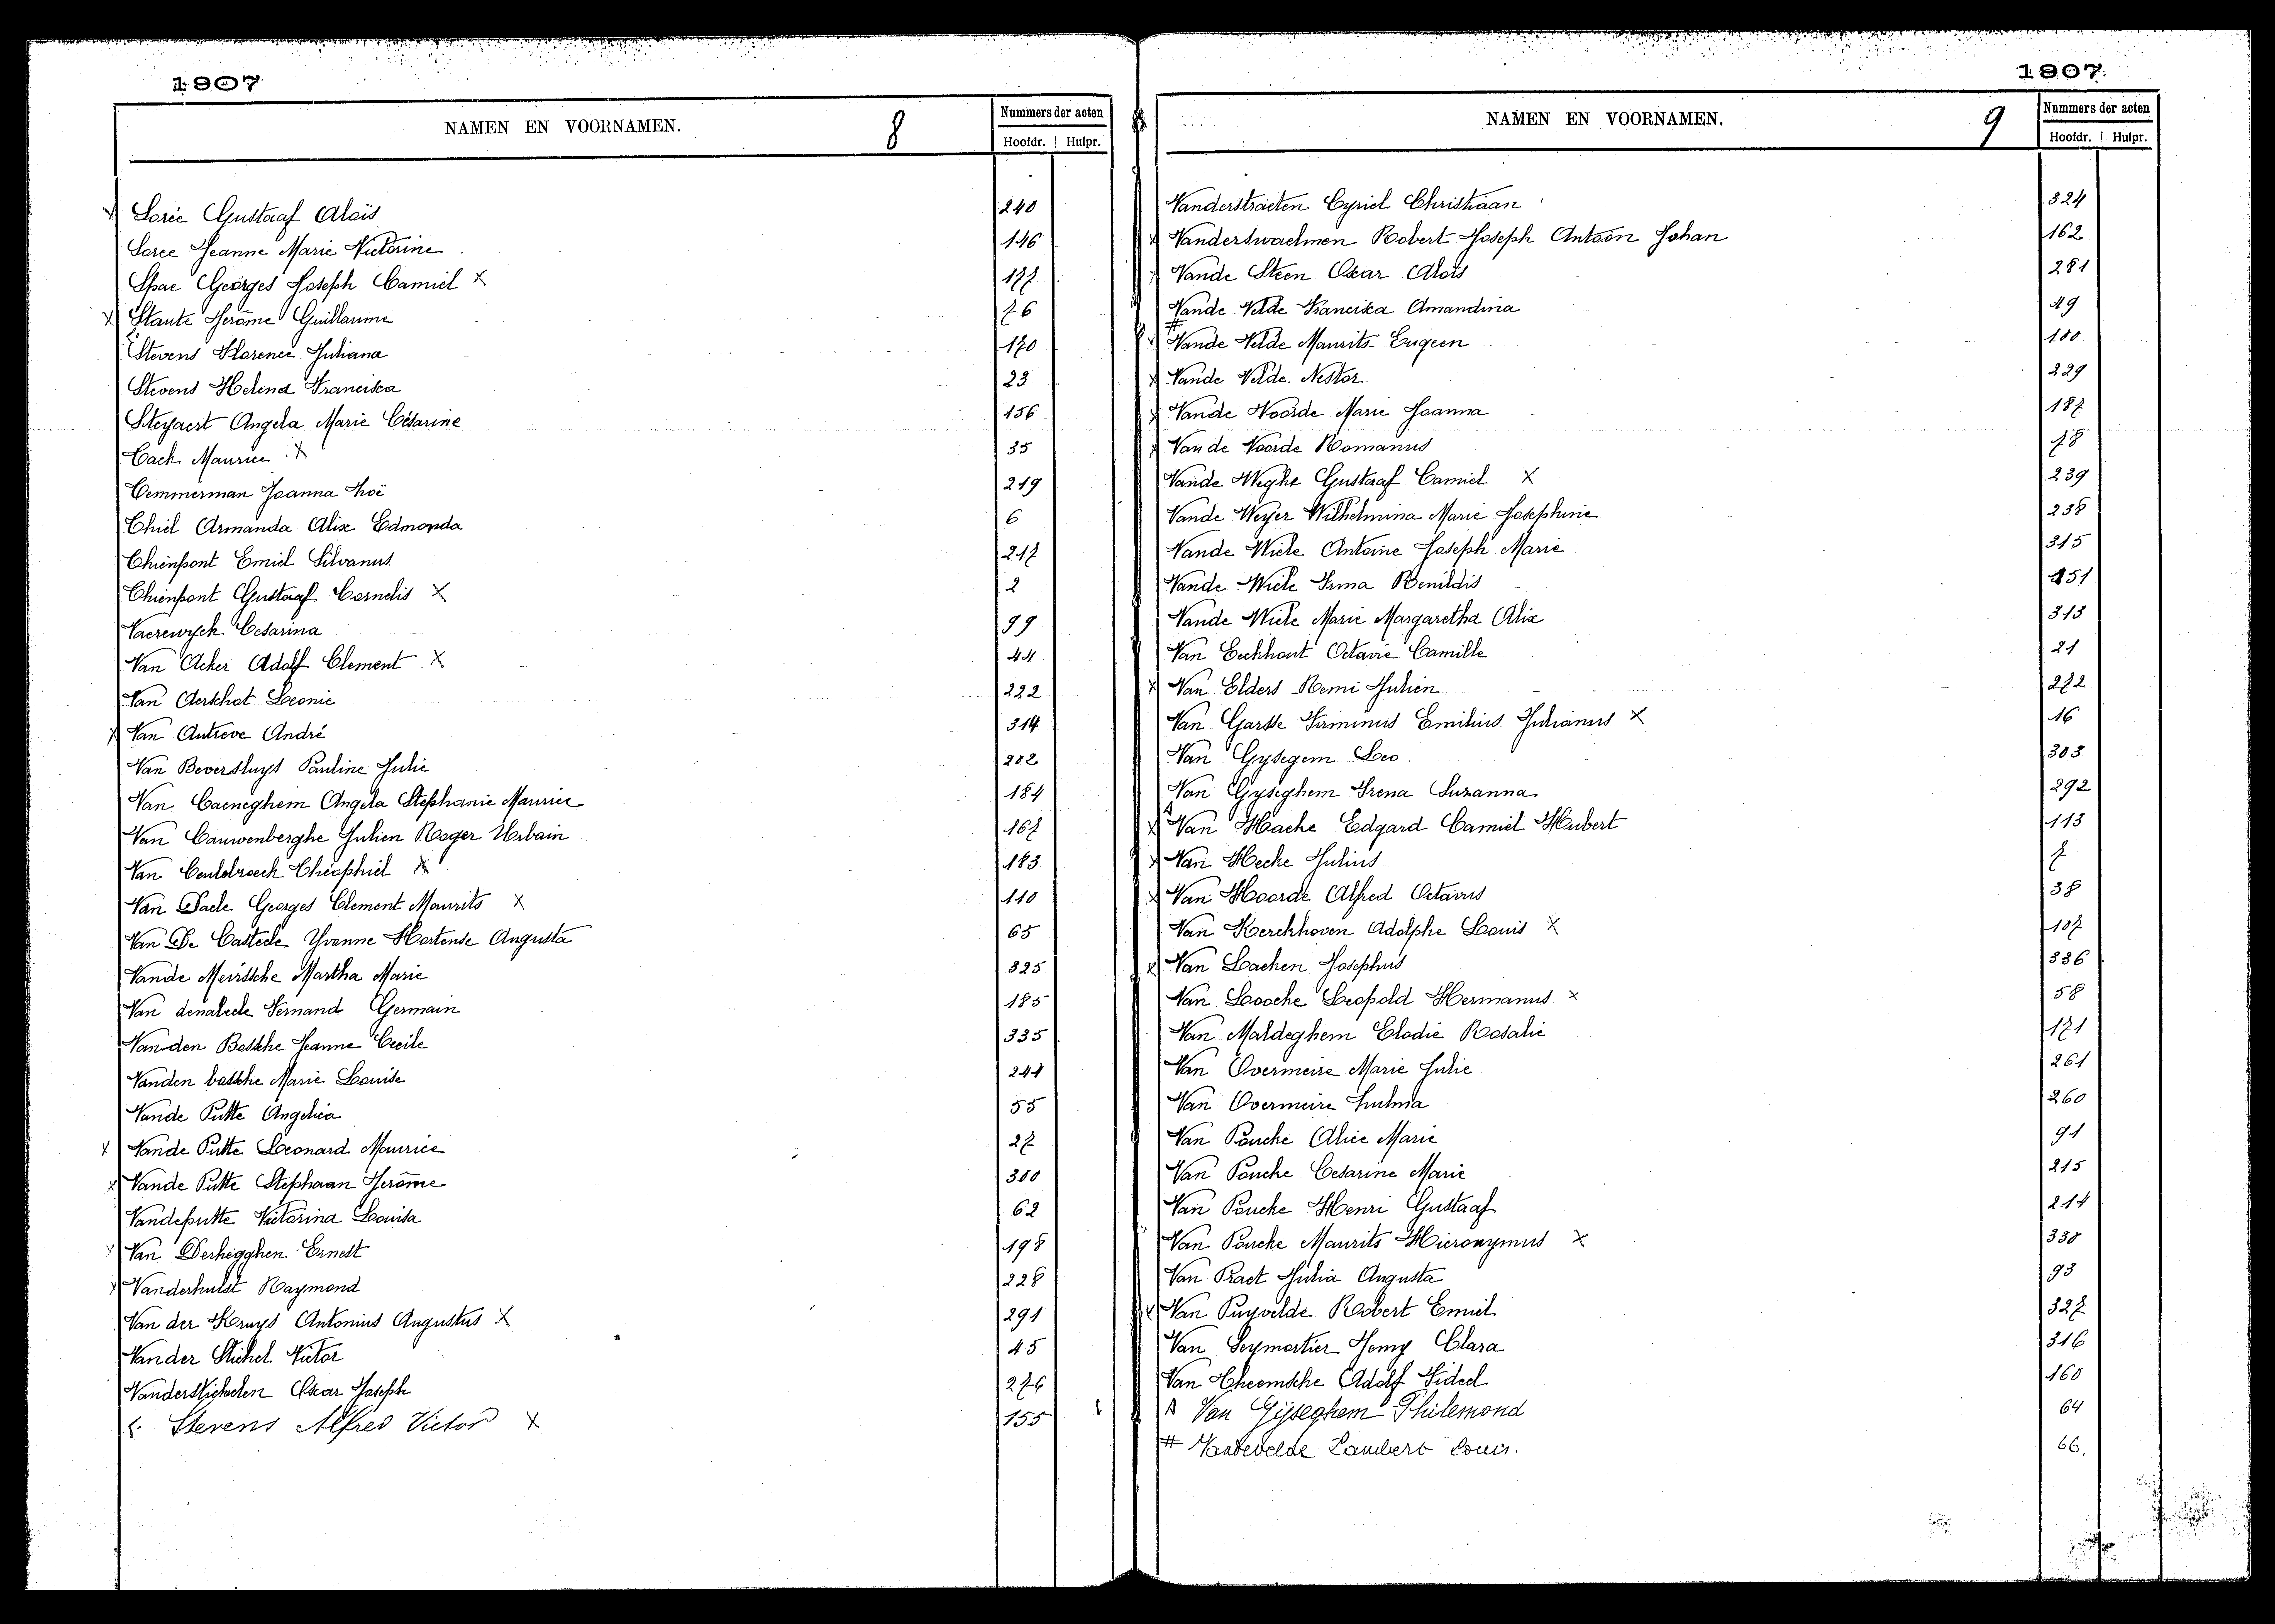 1907
NAMEN EN VOORNAMEN. 8 Nummers der acten
Hoofdr. Hulpr.
X Sorée Gustaaf Aloïs 240
Soree Jeanne Marie Victorine 146
Spae Georges Joseph Camiel X 177
X Staute Jerôme Guillaume 76
Stevens Florence Juliana 170
Stevens Helena Francisca 23
Steyaert Angela Marie Césarine 156
Tack Maurice X 35
Temmerman Joanna Zoë 219
Thiel Armanda Alix Edmonda 6
Thienpont Emiel Silvanus 217
Thienpont Gustaaf Cornelis X 2
Vaerewyck Cesarina 99
Van Acker Adolf Clement X 44
Van Aerschot Leonie 222
X Van Autreve André 314
Van Beversluys Pauline Julie 202
Van Caeneghem Angela Stephanie Maurice 184
Van Cauwenberghe Julien Roger Urbain 167
Van Ceulebroeck Théophiel X 183
Van Daele Georges Clement Maurits X 110
Van De Casteele Yvonne Hortense Augusta 65
Vande Meirssche Martha Marie 325
Van denabeele Fernand Germain 185
Van den Bossche Jeanne Cecile 335
Vanden bossche Marie Louise 244
Vande Putte Angelica 55
X Vande Putte Leonard Maurice 27
X Vande Putte Stephaan Jerôme 300
Vandeputte Victorina Louisa 62
Van Derheggen Ernest 198
X Vanderhulst Raymond 228
Van der Kruys Antonius Augustus X 291
Vander Stichel Victor 45
Vanderstichelen Oscar Joseph 276
Stevens Alfred Victor X 155
1907
NAMEN EN VOORNAMEN. 9 Nummers der acten
Hoofdr. Hulpr.
Vanderstraeten Cyriel Christiaan 324
X Vanderswaelmen Robert Joseph Antoon Johan 162
Vande Steen Oscar Aloïs 281
Vande Velde Francisca Amandina 49
# X Vande Velde Maurits Eugeen 100
X Vande Velde Nestor 229
X Vande Voorde Marie Joanna 187
X Van de Voorde Romanus 78
Vande Weghe Gustaaf Camiel X 239
Vande Weyer Wilhelmina Marie Josephine 238
Vande Wiele Antoine Joseph Marie 315
Vande Wiele Irma Renildis 151
Vande Wiele Marie Margaretha Alix 313
Van Eeckhout Octavie Camille 21
X Van Elders Remi Julien 272
Van Garsse Firminus Emilius Julianus X 16
Van Gysegem Leo 303
Van Gyseghem Irena Suzanna 292
X Van Hacke Edgard Camiel Hubert 113
X Van Hecke Julius 7
X Van Hoorde Alfred Octavus 38
Van Kerckhoven Adolphe Louis X 107
X Van Laeken Josephus 336
Van Loocke Leopold Hermanus X 58
Van Maldeghem Elodie Rosalie 171
Van Overmeire Marie Julie 261
Van Overmeire Zulma 260
Van Poucke Alice Marie 91
Van Poucke Cesarine Marie 215
Van Poucke Henri Gustaaf 214
Van Poucke Maurits Hieronymus X 330
Van Praet Julia Augusta 93
X Van Puyvelde Robert Emiel 327
Van Seymortier Jenny Clara 316
Van Theemsche Adolf Fideel 160
Van Gijseghem Philemond 64
# Vandevelde Lambert Louis. 66.